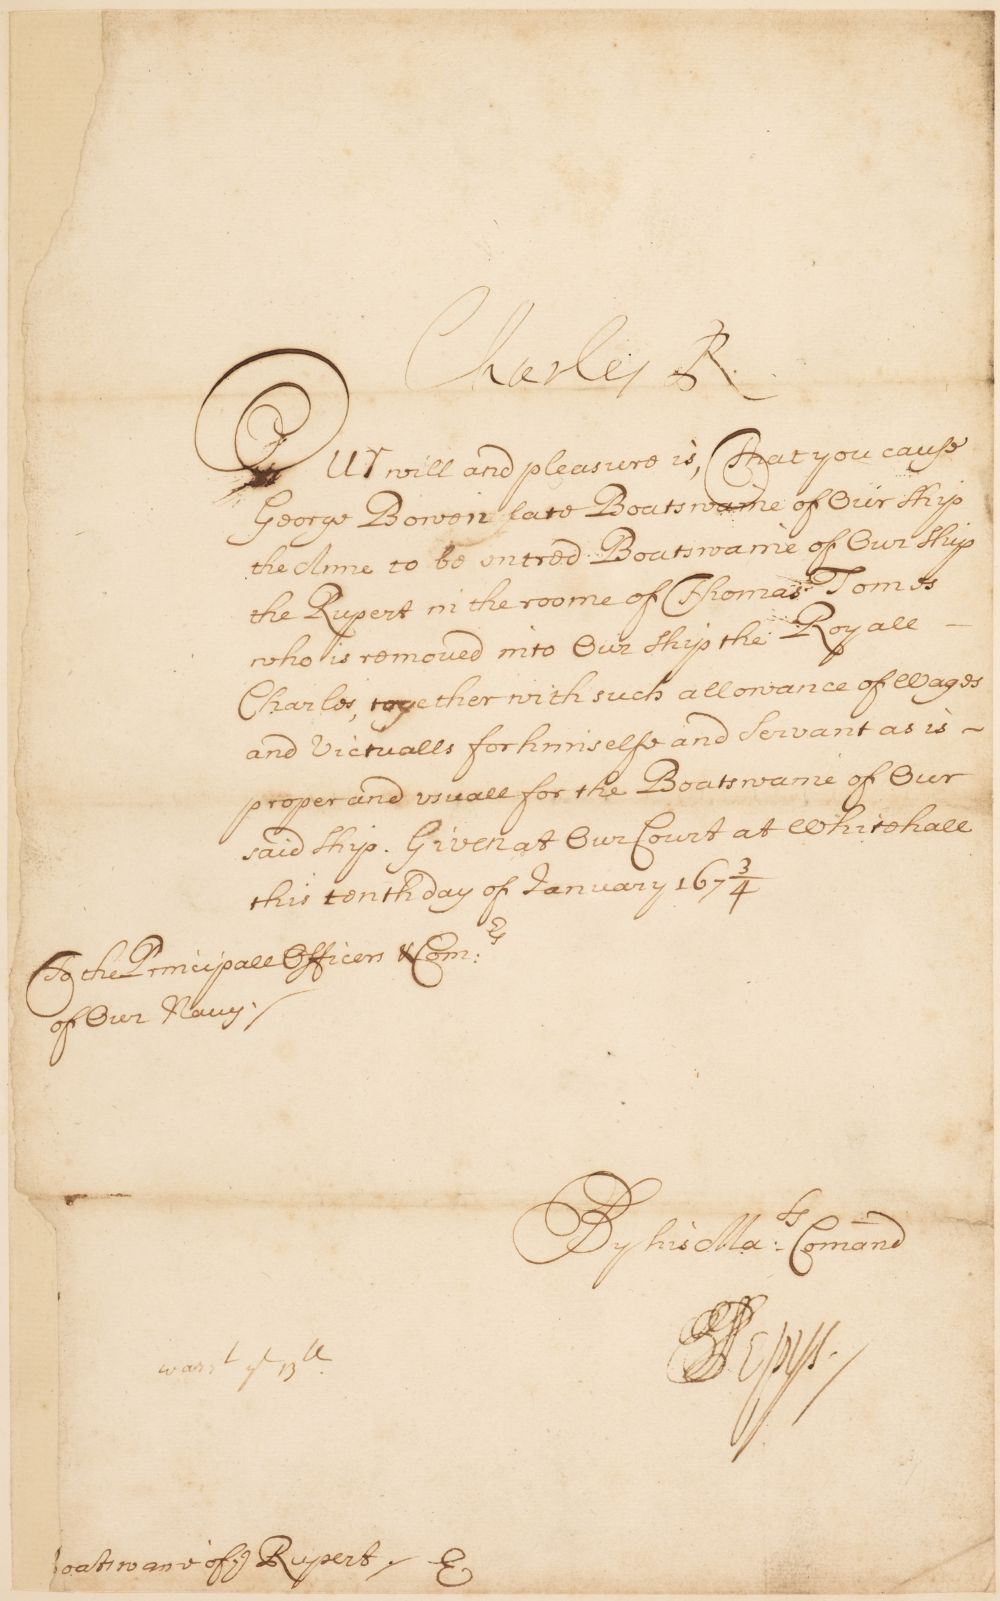 Charles R.
Our will and pleasure is, That you cause
George Bowen late Boatswaine of Our ship
the Anne to be entred Boatswaine of Our ship
the Rupert in the roome of Thomas Tomes
who is removed into Our ship the Royall –
Charles, together with such allowance of Wages
and Victualls for himselfe and Servant as is –
proper and usuall for the Boatswaine of Our
said ship. Given at Our Court at Whitehall
this tenth day of January 167¾
To the Principall Officers & Com:rs
of Our Navy.
By his Ma:ts Comand
SPepys.
warrt ye 13th
oatswane of ye Rupert. E